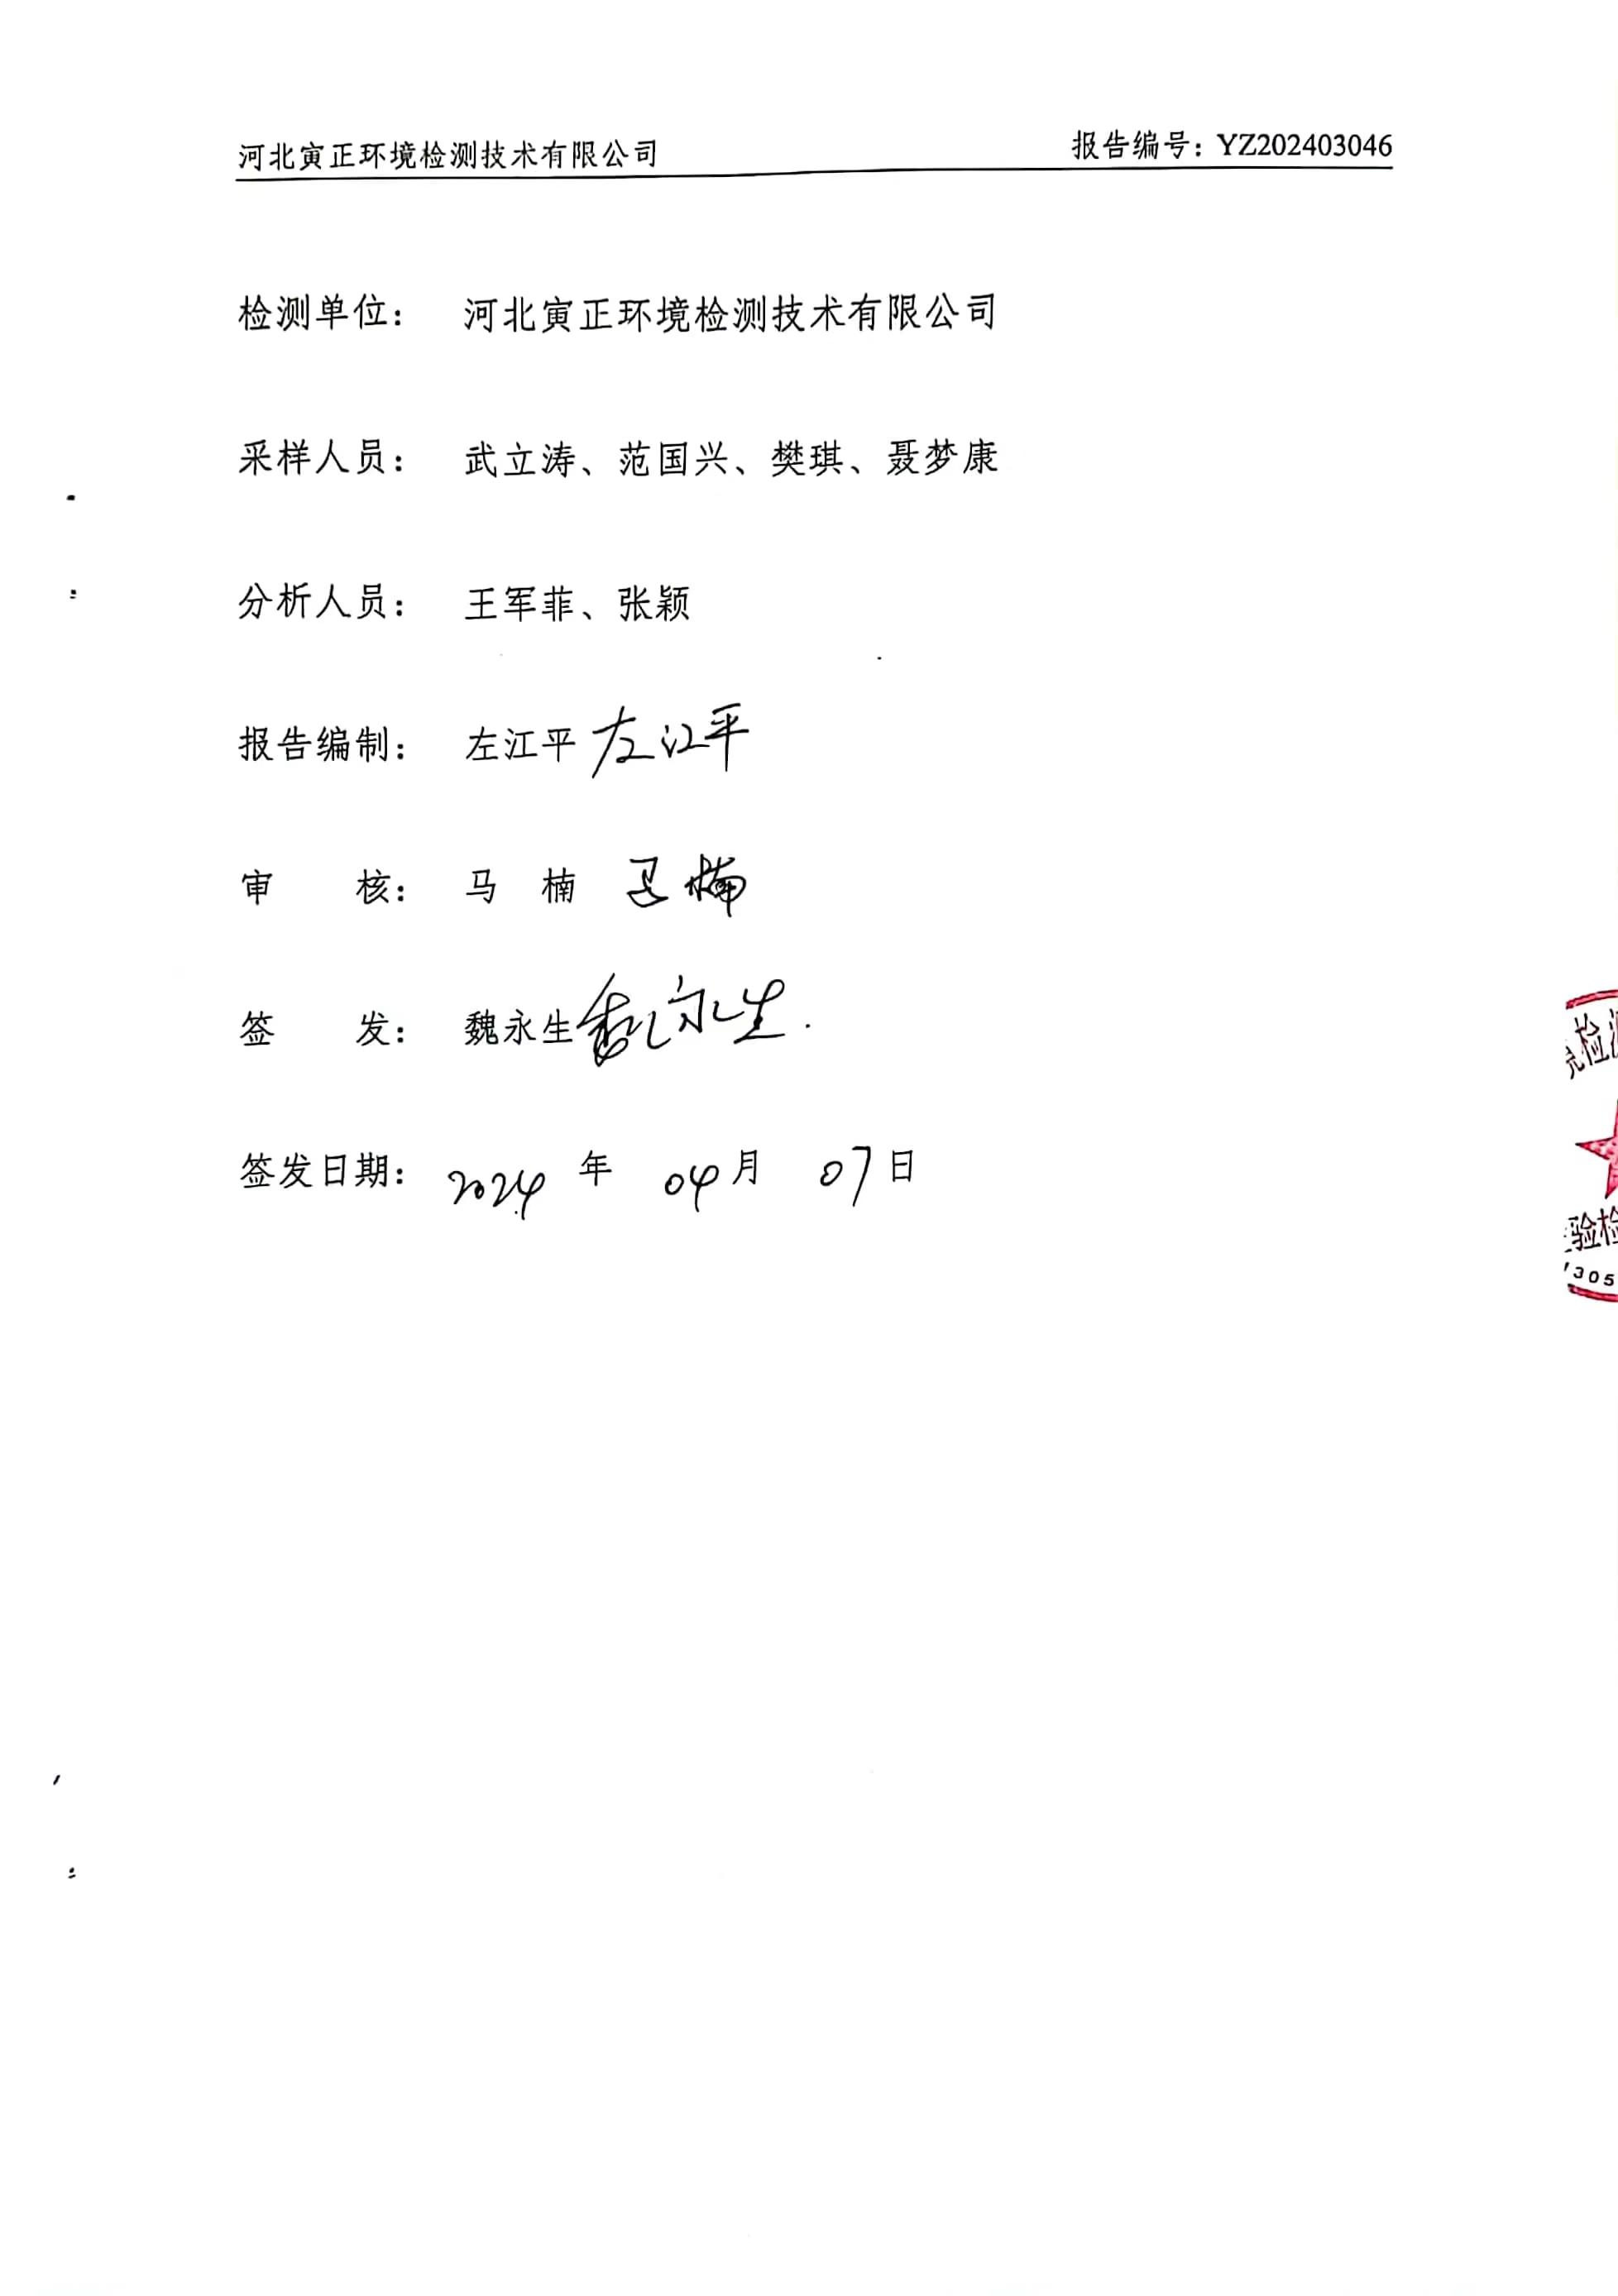 河北寅正环境检测技术有限公司 报告编号：YZ202403046
检测单位： 河北寅正环境检测技术有限公司
采样人员： 武立涛、范国兴、樊琪、聂梦康
分析人员： 王军菲、张颖
报告编制： 左江平 左江平
审 核： 马 楠 马楠
签 发： 魏永生 魏永生
签发日期： 2024 年 04 月 07 日
检测
验检
305